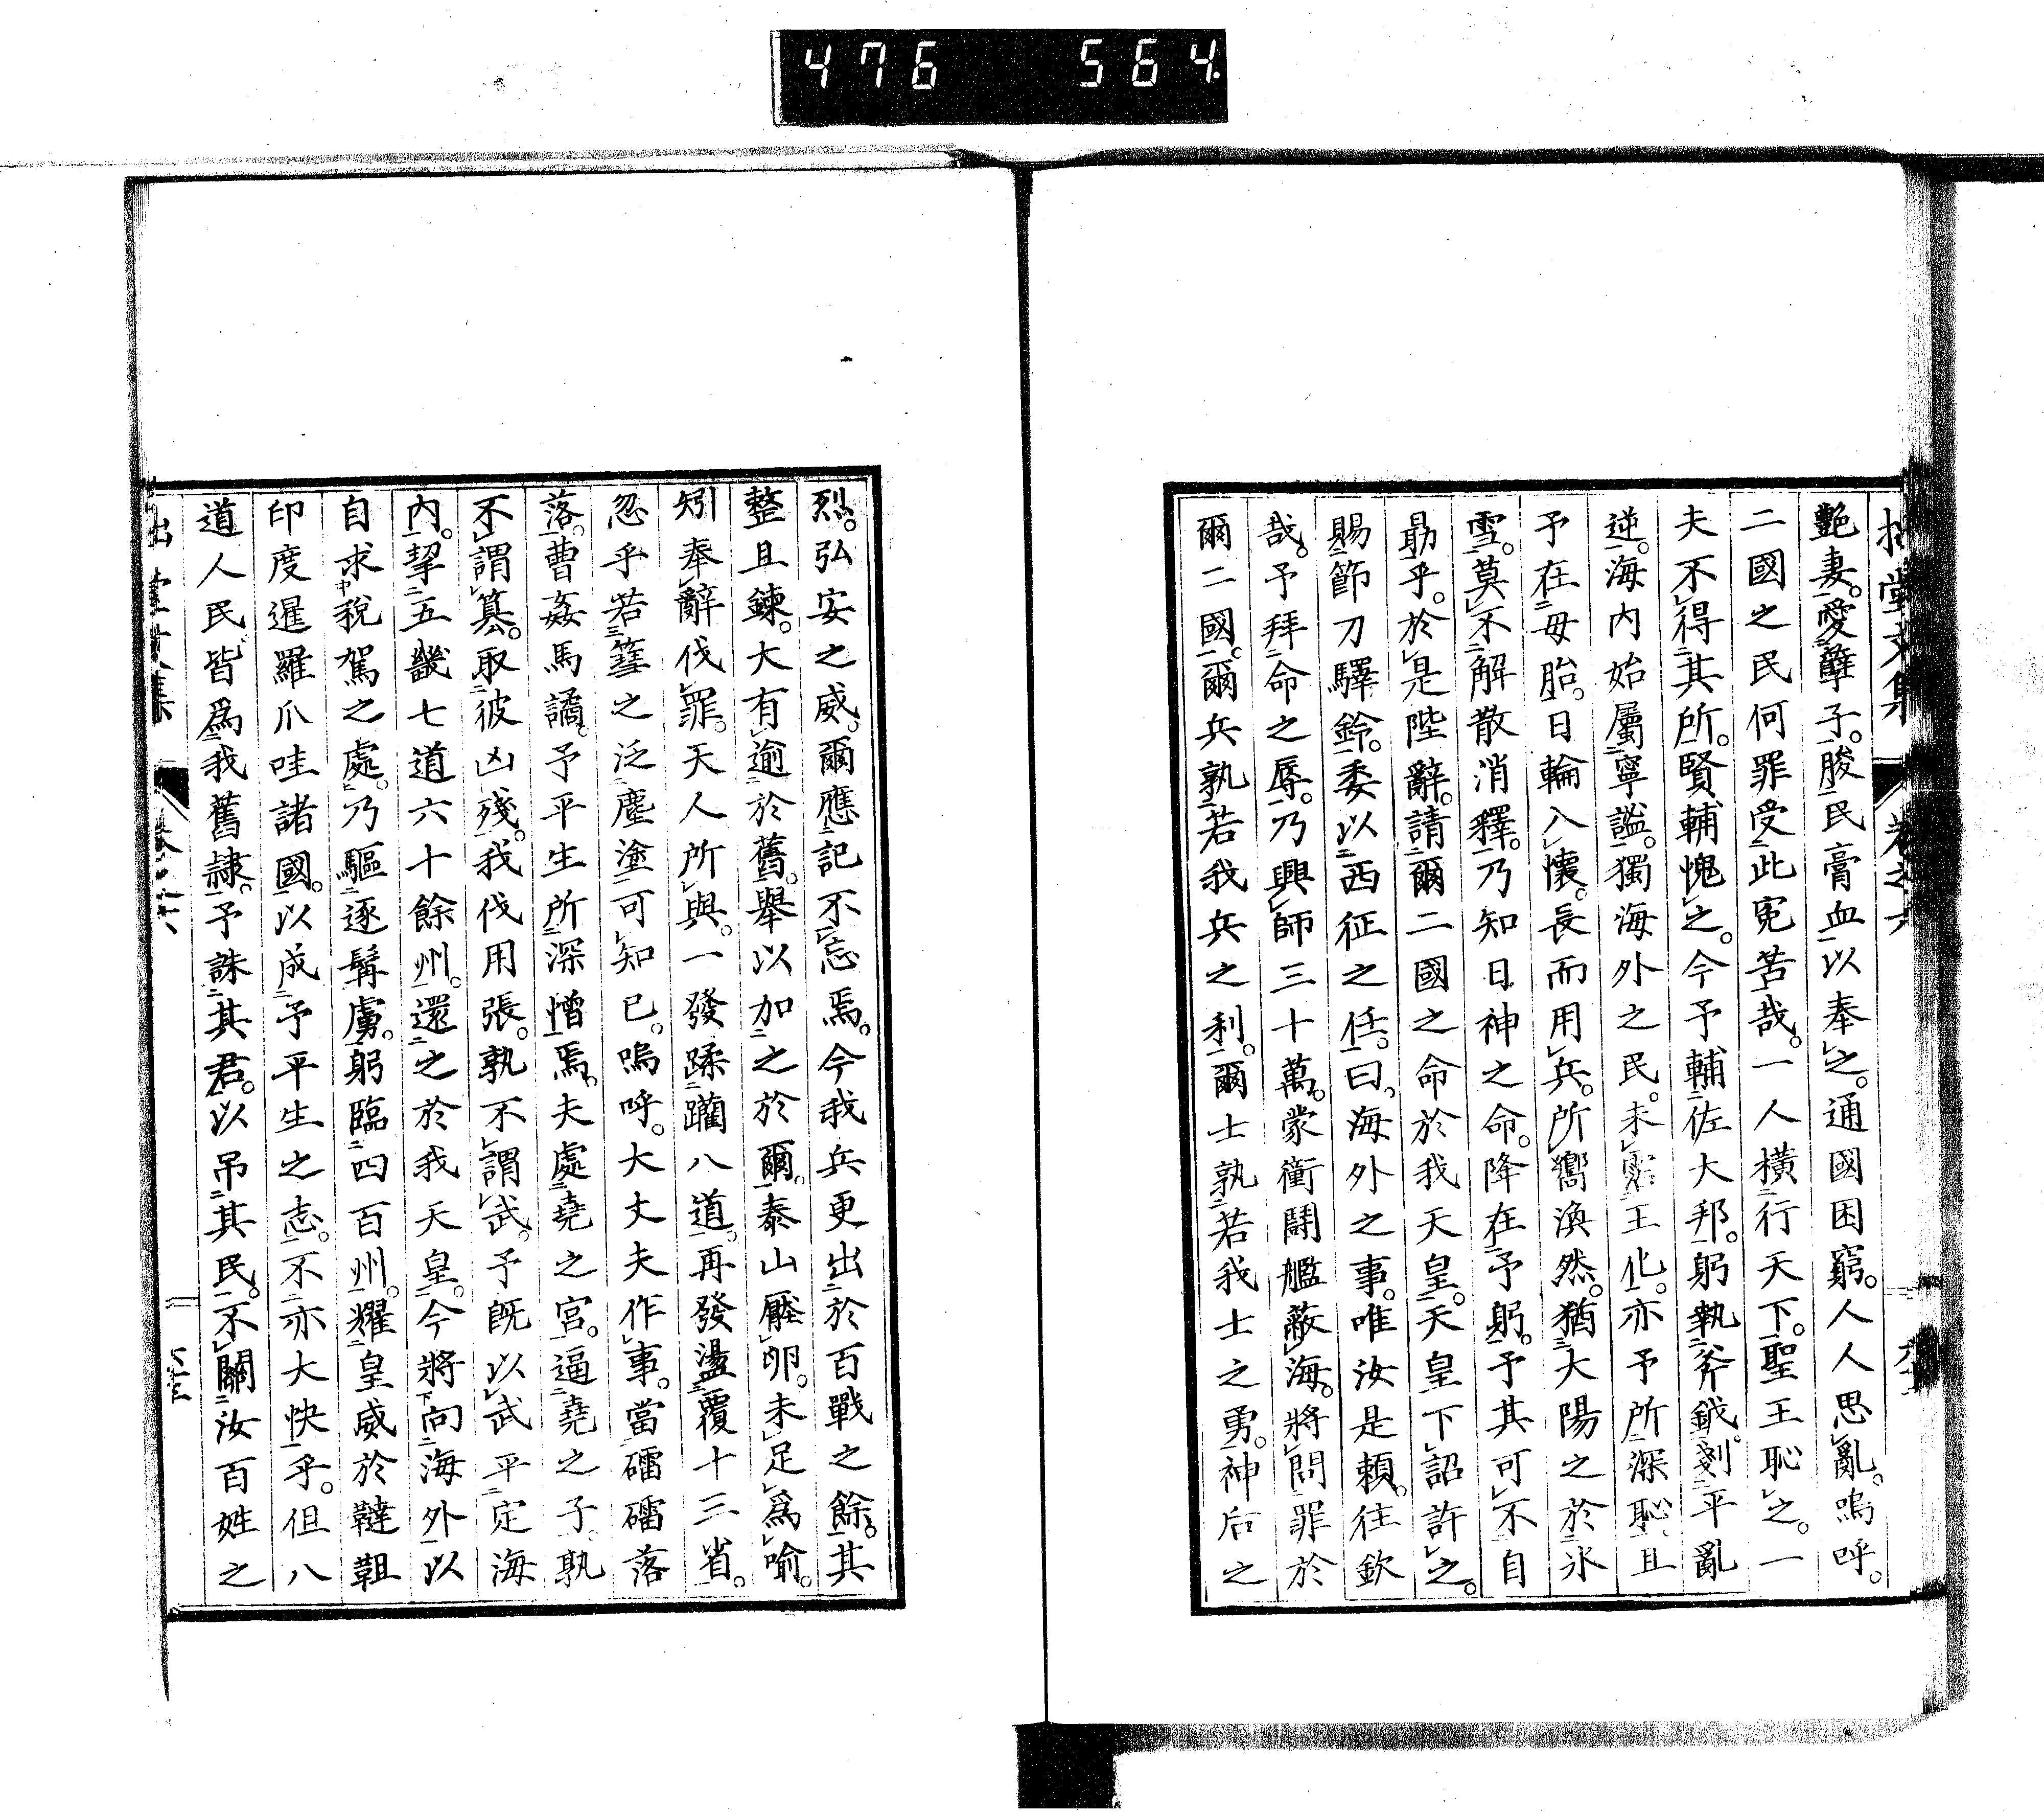 476 564
艷妻。愛孽子。朘民膏血以奉之。通國困窮。人人思亂。嗚呼。
二國之民何罪受此寃苦哉。一人橫行天下。聖王恥之。一
夫不得其所。賢輔愧之。今予輔佐大邦。躬執斧鉞。剗平亂
逆。海内始屬寧謐。獨海外之民。未霑王化。亦予所深恥。且
予在母胎。日輪入懷。長而用兵。所嚮渙然。猶大陽之於氷
雪。莫不解散消釋。乃知日神之命。降在予躬。予其可不自
勗乎。於是陛辭。請爾二國之命於我天皇。天皇下詔許之。
賜節刀驛鈴。委以西征之任。曰。海外之事。唯汝是賴。往欽
哉。予拜命之辱。乃興師三十萬。蒙衝鬪艦蔽海。將問罪於
爾二國。爾兵孰若我兵之利。爾士孰若我士之勇。神后之
烈。弘安之威。爾應記不忘焉。今我兵更出於百戰之餘。其
整且鍊。大有逾於舊。舉以加之於爾。泰山壓卵。未足爲喩。
矧奉辭伐罪。天人所與。一發蹂躪八道。再發盪覆十三省。
忽乎若篲之泛塵塗。可知已。嗚呼。大丈夫作事。當礌礌落
落。曹姦馬譎。予平生所深憎焉。夫處堯之宮。逼堯之子。孰
不謂簒。取彼凶殘。我伐用張。孰不謂武。予既以武平定海
内。挈五畿七道六十餘州。還之於我天皇。今將向海外以
自求税駕之處。乃驅逐髯虜。躬臨四百州。耀皇威於韃靼
印度暹羅爪哇諸國。以成予平生之志。不亦大快乎。但八
道人民。皆爲我舊隷。予誅其君。以吊其民。不關汝百姓之